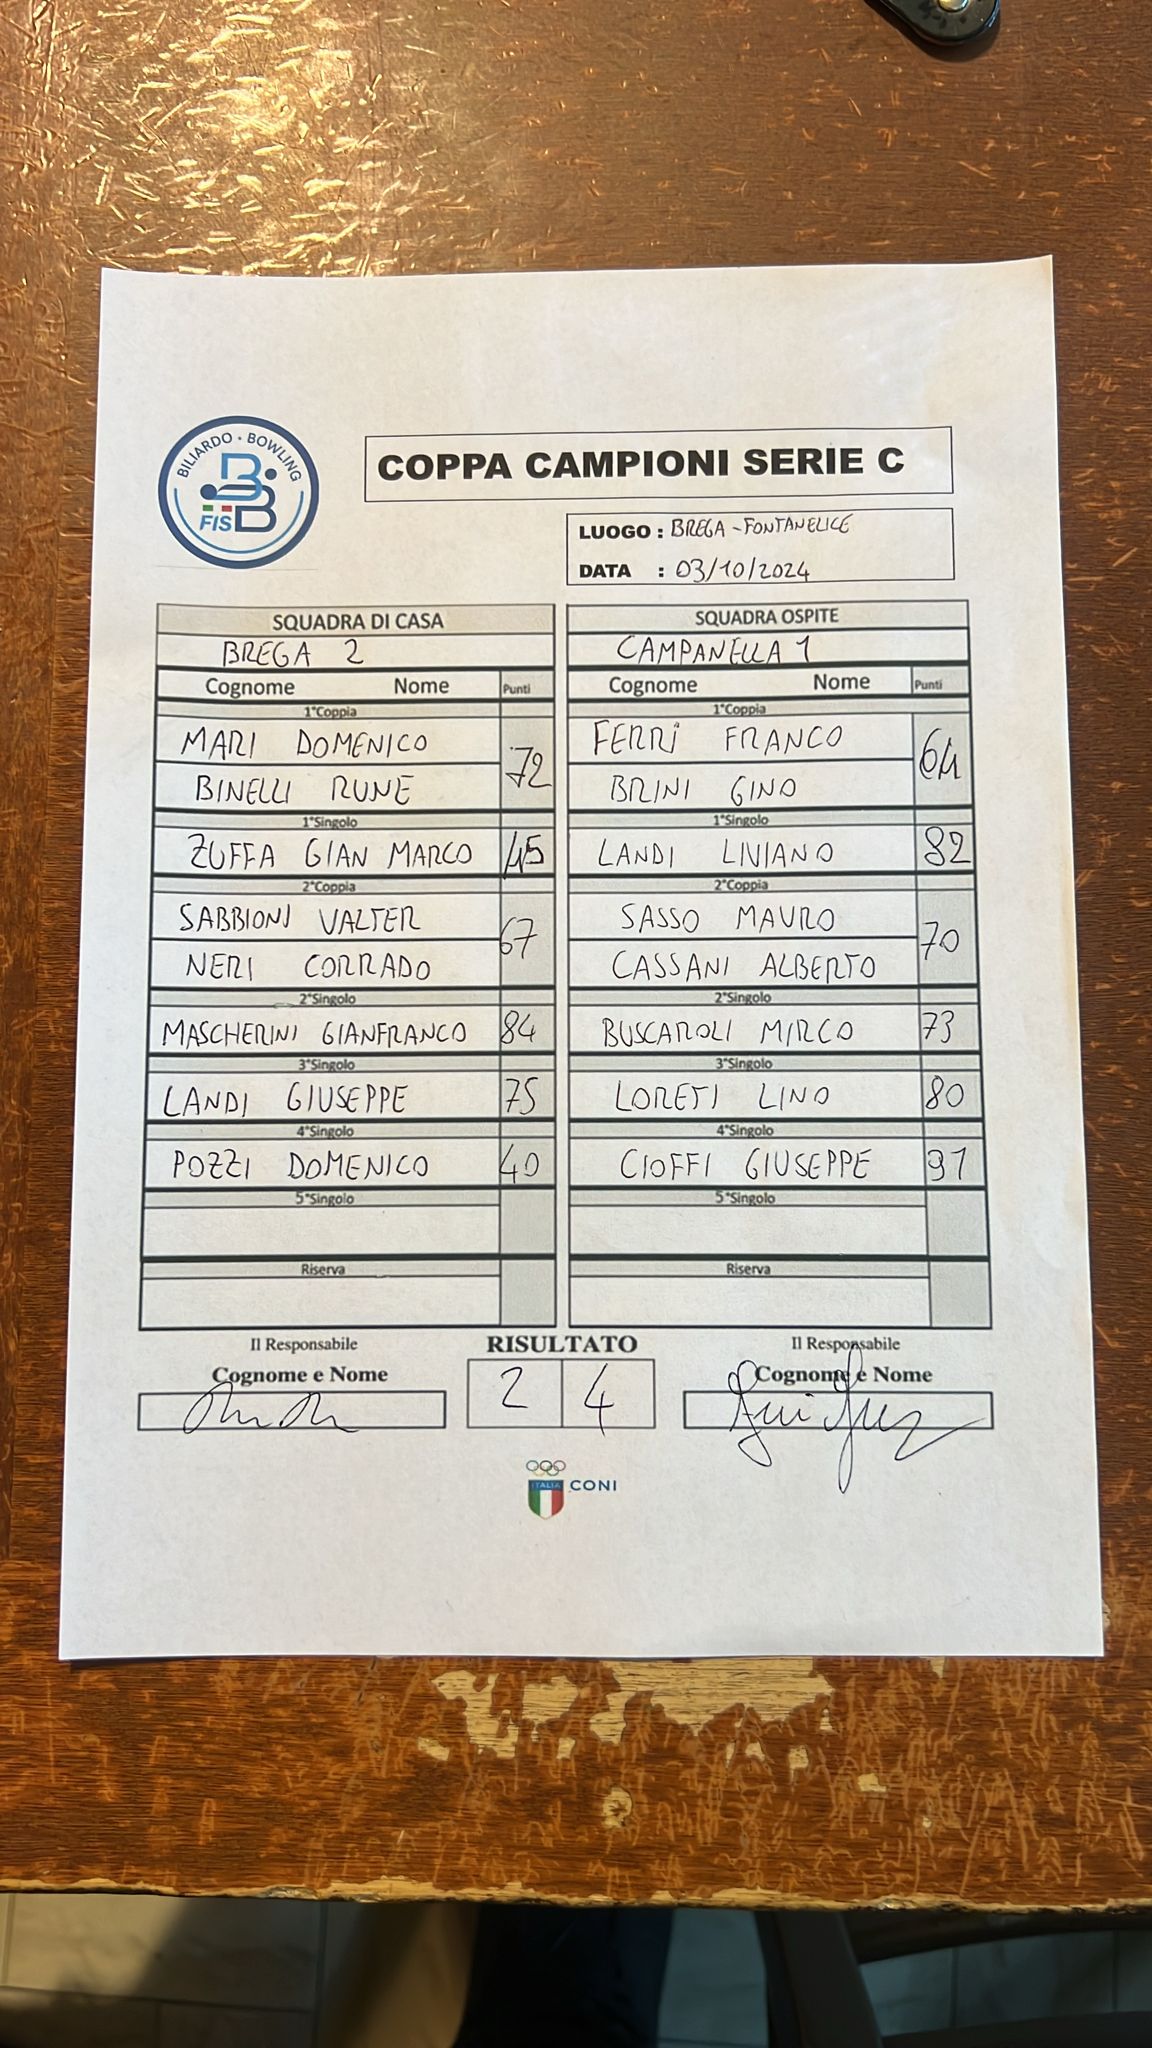 BILIARDO • BOWLING
FISB
COPPA CAMPIONI SERIE C
LUOGO : BREGA - FONTANELICE
DATA : 03/10/2024
SQUADRA DI CASA
BREGA 2
Cognome Nome Punti
1°Coppia
MARI DOMENICO
72
BINELLI RUNE
1°Singolo
ZUFFA GIAN MARCO 45
2°Coppia
SABBIONI VALTER
67
NERI CORRADO
2°Singolo
MASCHERINI GIANFRANCO 84
3°Singolo
LANDI GIUSEPPE 75
4°Singolo
POZZI DOMENICO 40
5°Singolo
Riserva
SQUADRA OSPITE
CAMPANELLA 1
Cognome Nome Punti
1°Coppia
FERRI FRANCO
64
BRINI GINO
1°Singolo
LANDI LIVIANO 82
2°Coppia
SASSO MAURO
70
CASSANI ALBERTO
2°Singolo
BUSCAROLI MIRCO 73
3°Singolo
LORETI LINO 80
4°Singolo
CIOFFI GIUSEPPE 91
5°Singolo
Riserva
Il Responsabile
Cognome e Nome
RISULTATO
2 4
Il Responsabile
Cognome e Nome
ITALIA
CONI